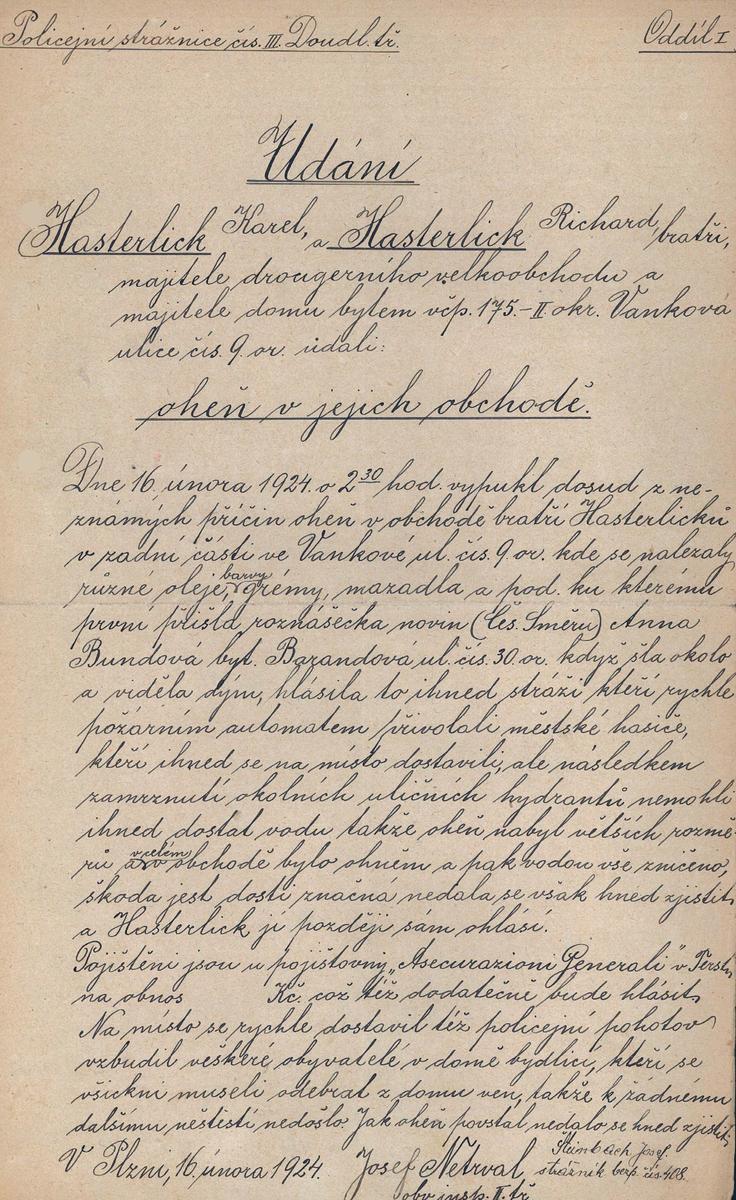 Policejní strážnice čís. III. Doudl. tř. Oddíl I
Udání
Hasterlick Karel, a Hasterlick Richard, bratři,
majitele drougerního velkoobchodu a
majitele domu bytem včp. 175.-II okr. Vanková
ulice čís. 9. or. udali:
oheň v jejich obchodě.
Dne 16. února 1924. o 2 30 hod. vypukl dosud z ne-
známých příčin oheň v obchodě bratří Hasterlicků
v zadní části ve Vankové ul. čís. 9. or. kde se nalezaly
různé oleje, barvy grémy, mazadla a pod. ku kterému
první přišla roznášečka novin (Čes. Směru) Anna
Bundová byt. Barandová ul. čís. 30. or. když šla okolo
a viděla dým, hlásila to ihned stráži kteří rychle
požárním automatem přivolali městské hasiče,
kteří ihned se na místo dostavili, ale následkem
zamrznutí okolních uličních hydrantů nemohli
ihned dostat vodu takže oheň nabyl větších rozmě-
rů a v celém obchodě bylo ohněm a pak vodou vše zničeno,
škoda jest dosti značna nedala se však hned zjistit,
a Hasterlick ji později sám ohlásí.
Pojištěni jsou u pojištovny „Asecurazioni Generali" v Terstu
na obnos Kč. což též dodatečně bude hlásit,
Na místo se rychle dostavil též policejní pohotov
vzbudil veškeré obyvatelé v domě bydlící, kteří se
všickni museli odebrat z domu ven, takže k žádnému
dalšímu neštěstí nedošlo. Jak oheň povstal nedalo se hned zjistit,
V Plzni, 16. února 1924. Josef Netrval Steinbach Josef.
strážník bezp. čís. 408.
obv. insp. II. tř.